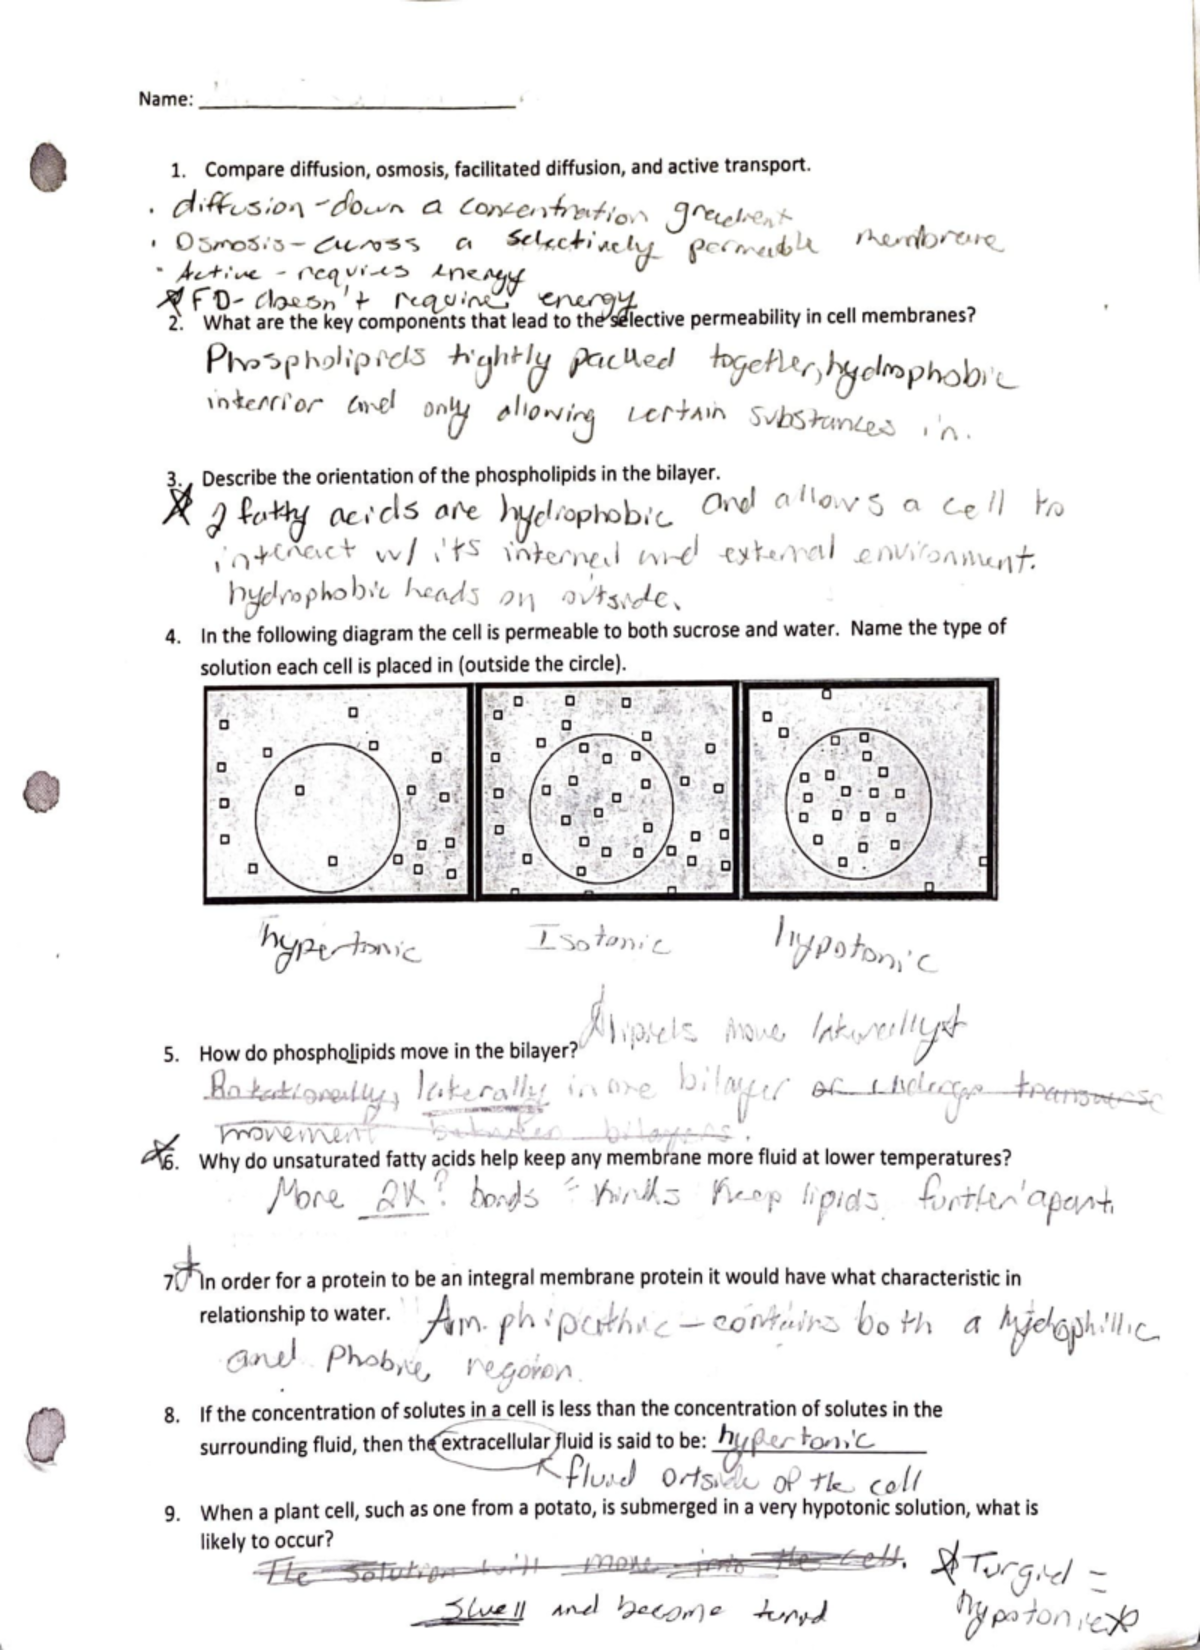 Name:
1. Compare diffusion, osmosis, facilitated diffusion, and active transport.
· diffusion - down a concentration gradient
· Osmosis - across a selectively permeable membrane
· Active - requires energy
FD - doesn't require energy
2. What are the key components that lead to the selective permeability in cell membranes?
Phospholipids tightly packed together, hydrophobic
interior and only allowing certain substances in.
3. Describe the orientation of the phospholipids in the bilayer.
2 fatty acids are hydrophobic and allows a cell to
interact w/ its internal and external environment.
hydrophobic heads on outside.
4. In the following diagram the cell is permeable to both sucrose and water. Name the type of
solution each cell is placed in (outside the circle).
hypertonic Isotonic hypotonic
lipids move laterally
5. How do phospholipids move in the bilayer?
Rotationally, laterally in one bilayer or undergo transverse
movement between bilayers.
6. Why do unsaturated fatty acids help keep any membrane more fluid at lower temperatures?
More bonds = kinks keep lipids further apart.
7. In order for a protein to be an integral membrane protein it would have what characteristic in
relationship to water. Amphipathic - contains both a hydrophillic
and phobic region.
8. If the concentration of solutes in a cell is less than the concentration of solutes in the
surrounding fluid, then the extracellular fluid is said to be: hypertonic
fluid outside of the cell
9. When a plant cell, such as one from a potato, is submerged in a very hypotonic solution, what is
likely to occur?
The solution will move into the cell.
Turgid =
hypotonic
swell and become